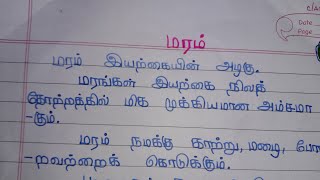 Date
Page
மரம்
மரம் இயற்கையின் அழகு.
மரங்கள் இயற்கை நிலத்
தோற்றத்தில் மிக முக்கியமான அம்சமா
-கும்.
மரம் நமக்கு காற்று, மழை, போ
-றவற்றைக் கொடுக்கும்.